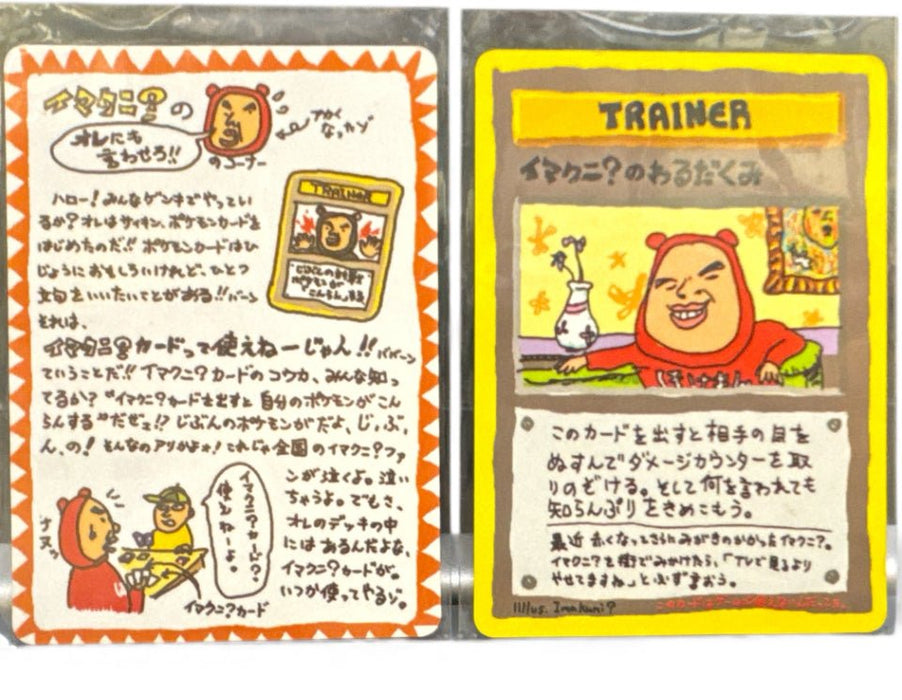 イマクニ？の
オレにも
言わせろ!!
のコーナー
アカく
なったゾ
TRAINER
ハロー！みんなゲンキでやってい
るか？オレはサイキン、ポケモンカードを
はじめたのだ!! ポケモンカードはひ
じょうにおもしろいけれど、ひとつ
文句をいいたいことがある!! バーン
それは、
イマクニ？カードって使えねーじゃん!! ババーン
ていうことだ!! イマクニ？カードのコウカ、みんな知っ
てるか？“イマクニ？カードを出すと自分のポケモンがこん
らんする”だぜェ!? じぶんのポケモンがだよ、じ,ぶ,
ん,の！そんなのアリかよォ！これじゃ全国のイマクニ？ファ
ンが泣くよ。泣い
ちゃうよ。でもさ、
オレのデッキの中
にはあるんだよな、
イマクニ？カードが。
いつか使ってやるゾ。
イマクニ？カード？
使えねーよ。
イマクニ？カード
TRAINER
イマクニ？のわるだくみ
このカードを出すと相手の目を
ぬすんでダメージカウンターを取
りのどける。そして何を言われても
知らんぷりをきめこもう。
最近赤くなってさらにみがきのかかったイマクニ？。
イマクニ？を街でみかけたら、「TVで見るより
やせてますね」と必ず言おう。
Illus. Imakuni?